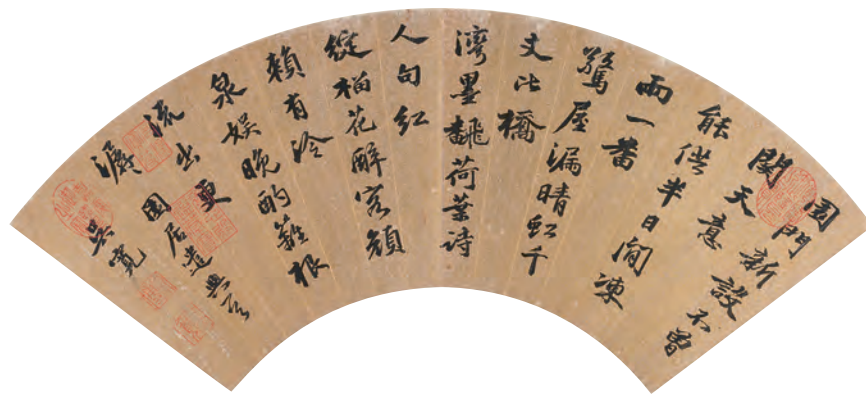 園門新設不曾
關天意
能供半日閒凍
雨一番
驚屋漏晴虹千
丈比橋
灣墨翻荷葉詩
人句紅
綻榴花醉客顏
賴有冷
泉娛晚酌籬根
流出更
潺
園居遣興
吳寬